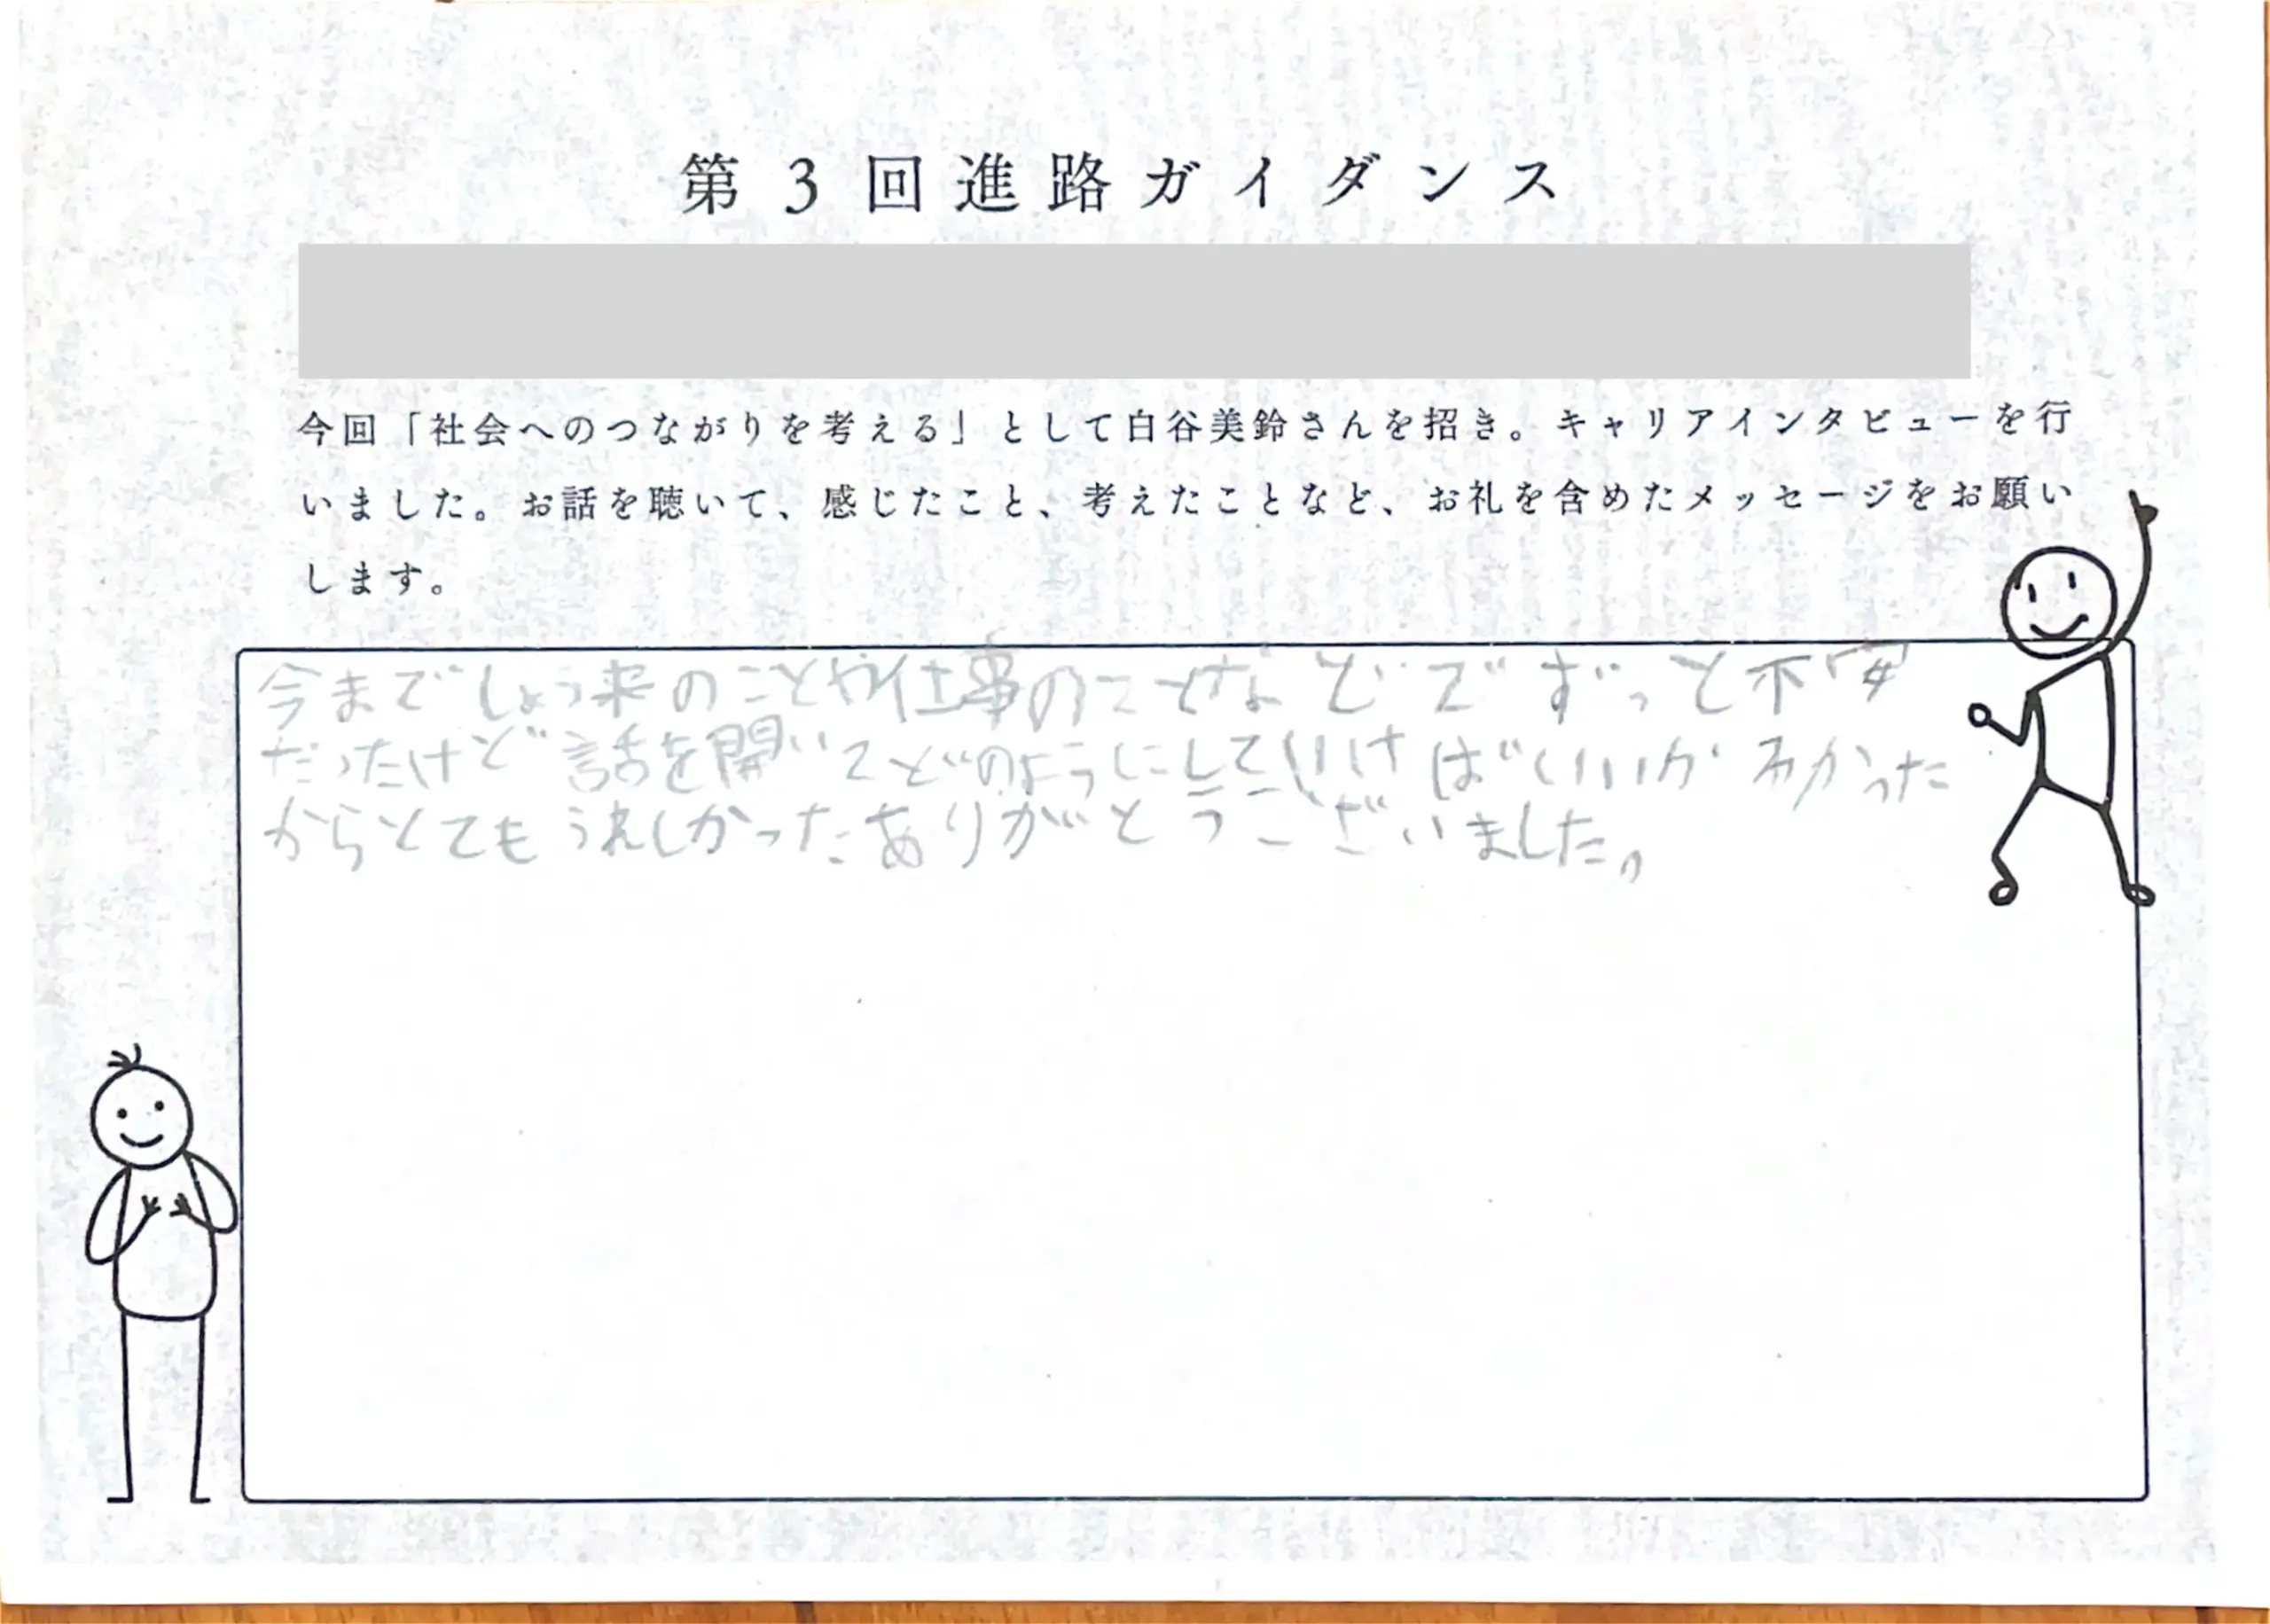 第3回進路ガイダンス
今回「社会へのつながりを考える」として白谷美鈴さんを招き。キャリアインタビューを行
いました。お話を聴いて、感じたこと、考えたことなど、お礼を含めたメッセージをお願い
します。
今までしょう来のことや仕事のことなどでずっと不安
だったけど話を聞いてどのようにしていけばいいかわかった
からとてもうれしかったありがとうございました。